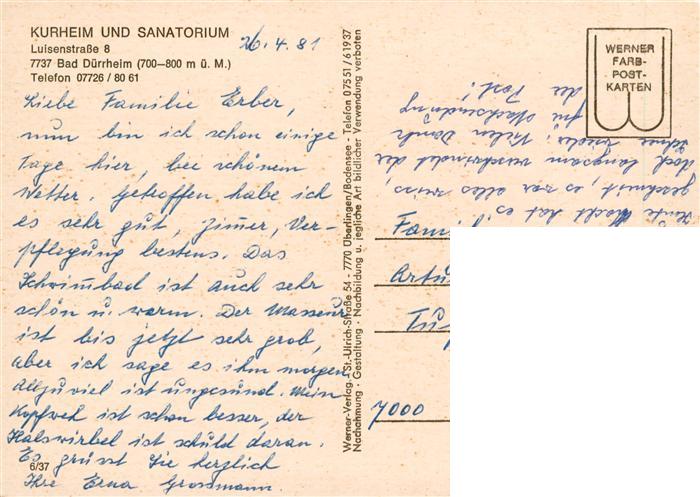 KURHEIM UND SANATORIUM
Luisenstraße 8
7737 Bad Dürrheim (700—800 m ü. M.)
Telefon 07726 / 80 61
26.4.81
Liebe Familie Erber,
nun bin ich schon einige
Tage hier, bei schönem
Wetter. Getroffen habe ich
es sehr gut, Zimer, Ver-
pflegung bestens. Das
Schwimmbad ist auch sehr
schön u. warm. Der Masseur
ist bis jetzt sehr grob,
aber ich sage es ihm morgen
Allzuviel ist ungesund. Mein
Kopfweh ist schon besser, der
Halswirbel ist schuld daran.
Es grüsst Sie herzlich
Ihre Erna Grossmann.
6/37
Werner-Verlag, St.-Ulrich-Straße 54 - 7770 Überlingen/Bodensee - Telefon 07551/61937
Nachahmung - Gestaltung - Nachbildung u. jegliche Art bildlicher Verwendung verboten
WERNER
FARB-
POST-
KARTEN
Heute Nacht hat es
geschneit, es war alles weiss,
doch langsam verschwindet der
Schnee wieder. Vielen Dank
für Nachsendung
der Post!
Fam
Artu
Tu
7000